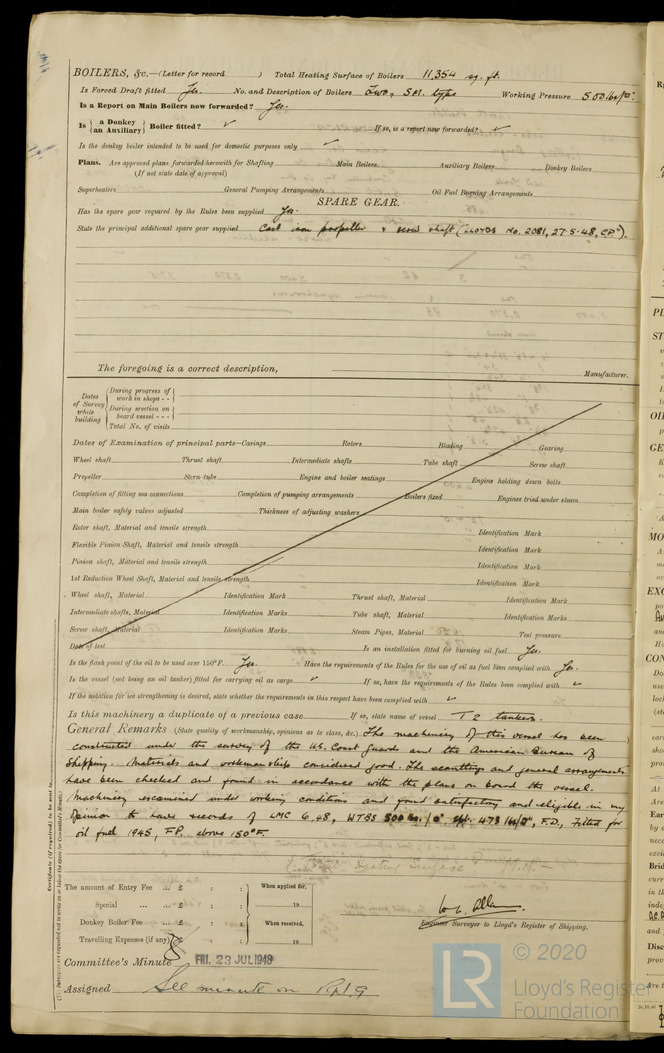 BOILERS, &c.—(Letter for record ) Total Heating Surface of Boilers 11,354 sq. ft.
Is Forced Draft fitted Yes. No. and Description of Boilers Two, S.M. type Working Pressure 500 lbs/□".
Is a Report on Main Boilers now forwarded? Yes.
Is { a Donkey / an Auxiliary } Boiler fitted? ✓ If so, is a report now forwarded? ✓
Is the donkey boiler intended to be used for domestic purposes only ✓
Plans. Are approved plans forwarded herewith for Shafting Main Boilers Auxiliary Boilers Donkey Boilers
(If not state date of approval)
Superheaters General Pumping Arrangements Oil Fuel Burning Arrangements
SPARE GEAR.
Has the spare gear required by the Rules been supplied Yes.
State the principal additional spare gear supplied Cast iron propeller & screw shaft (LLOYDS No. 2081, 27.5.48, C.P.).
The foregoing is a correct description,
Manufacturer.
Dates of Survey while building
During progress of work in shops - -
During erection on board vessel - - -
Total No. of visits
Dates of Examination of principal parts—Casings Rotors Blading Gearing
Wheel shaft Thrust shaft Intermediate shafts Tube shaft Screw shaft
Propeller Stern tube Engine and boiler seatings Engine holding down bolts
Completion of fitting sea connections Completion of pumping arrangements Boilers fixed Engines tried under steam
Main boiler safety valves adjusted Thickness of adjusting washers
Rotor shaft, Material and tensile strength Identification Mark
Flexible Pinion Shaft, Material and tensile strength Identification Mark
Pinion shaft, Material and tensile strength Identification Mark
1st Reduction Wheel Shaft, Material and tensile strength Identification Mark
Wheel shaft, Material Identification Mark Thrust shaft, Material Identification Mark
Intermediate shafts, Material Identification Marks Tube shaft, Material Identification Marks
Screw shaft, Material Identification Marks Steam Pipes, Material Test pressure
Date of test Is an installation fitted for burning oil fuel Yes.
Is the flash point of the oil to be used over 150°F. Yes. Have the requirements of the Rules for the use of oil as fuel been complied with Yes.
Is the vessel (not being an oil tanker) fitted for carrying oil as cargo ✓ If so, have the requirements of the Rules been complied with ✓
If the notation for ice strengthening is desired, state whether the requirements in this respect have been complied with ✓
Is this machinery a duplicate of a previous case If so, state name of vessel T 2 tankers.
General Remarks (State quality of workmanship, opinions as to class, &c.) The machinery of this vessel has been
constructed under the survey of the U.S. Coast Guards and the American Bureau of
Shipping. Materials and workmanship considered good. The scantlings and general arrangements
have been checked and found in accordance with the plans on board the vessel.
Machinery examined under working conditions and found satisfactory and eligible in my
opinion to have records of LMC 6,48, WTBS 500 lbs/□", 473 lbs/□", F.D., Fitted for
oil fuel 1945, F.P. above 150°F.
The amount of Entry Fee ... £ : : When applied for,
Special ... ... £ : : 19
Donkey Boiler Fee ... £ : : When received,
Travelling Expenses (if any) £ : : 19
Engineer Surveyor to Lloyd's Register of Shipping.
Committee's Minute FRI. 23 JUL 1948
Assigned See minute on Rpt. 9
© 2020
LR
Lloyd's Register
Foundation